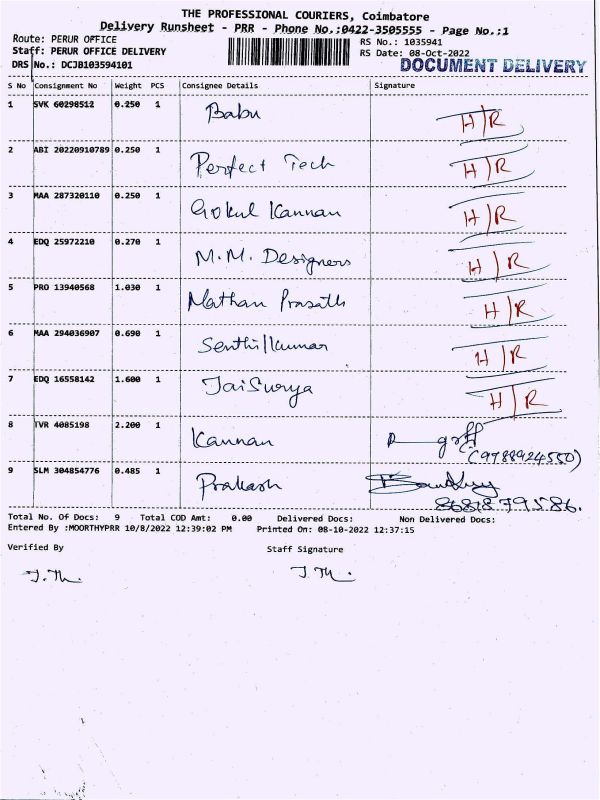 THE PROFESSIONAL COURIERS, Coimbatore
Delivery Runsheet - PRR - Phone No.:0422-3505555 - Page No.:1
Route: PERUR OFFICE RS No.: 1035941
Staff: PERUR OFFICE DELIVERY RS Date: 08-Oct-2022
DRS No.: DCJB103594101 DOCUMENT DELIVERY
S No Consignment No Weight PCS Consignee Details Signature
1 SVK 60298512 0.250 1 Babu H/R
2 ABI 20220910789 0.250 1 Perfect Tech H/R
3 MAA 287320110 0.250 1 Gokul Kannan H/R
4 EDQ 25972210 0.270 1 M.M. Designers H/R
5 PRO 13940568 1.030 1 Mathan Prasath H/R
6 MAA 294036907 0.690 1 Senthilkumar H/R
7 EDQ 16558142 1.600 1 JaiSurya H/R
8 TVR 4085198 2.200 1 Kannan
(9788924550)
9 SLM 304854776 0.485 1 Prakash
8681879586.
Total No. Of Docs: 9 Total COD Amt: 0.00 Delivered Docs: Non Delivered Docs:
Entered By :MOORTHYPRR 10/8/2022 12:39:02 PM Printed On: 08-10-2022 12:37:15
Verified By Staff Signature